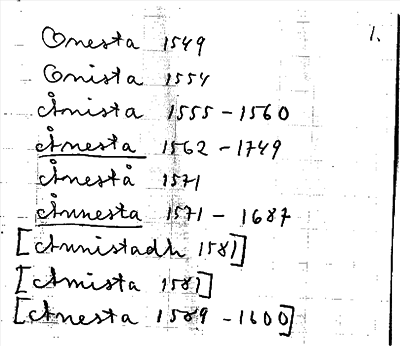 Onesta 1549 1.
Onista 1554
Ånista 1555 - 1560
Ånesta 1562 - 1749
Ånestå 1571
Ånnesta 1571 - 1687
[Annistadh 1581]
[Amista 1581]
[Anesta 1589 - 1600]